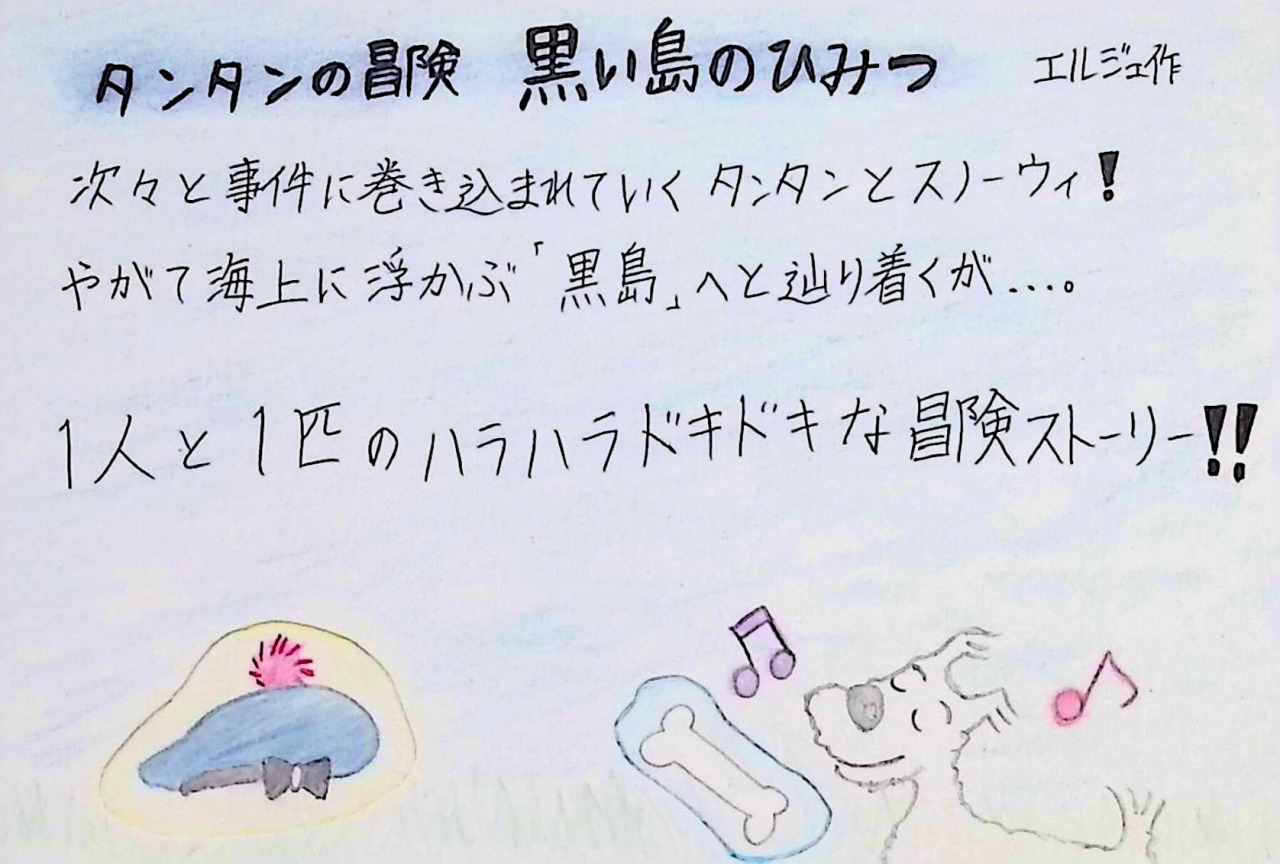 タンタンの冒険 黒い島のひみつ エルジェ作
次々と事件に巻き込まれていくタンタンとスノーウィ!
やがて海上に浮かぶ「黒島」へと辿り着くが…。
1人と1匹のハラハラドキドキな冒険ストーリー!!